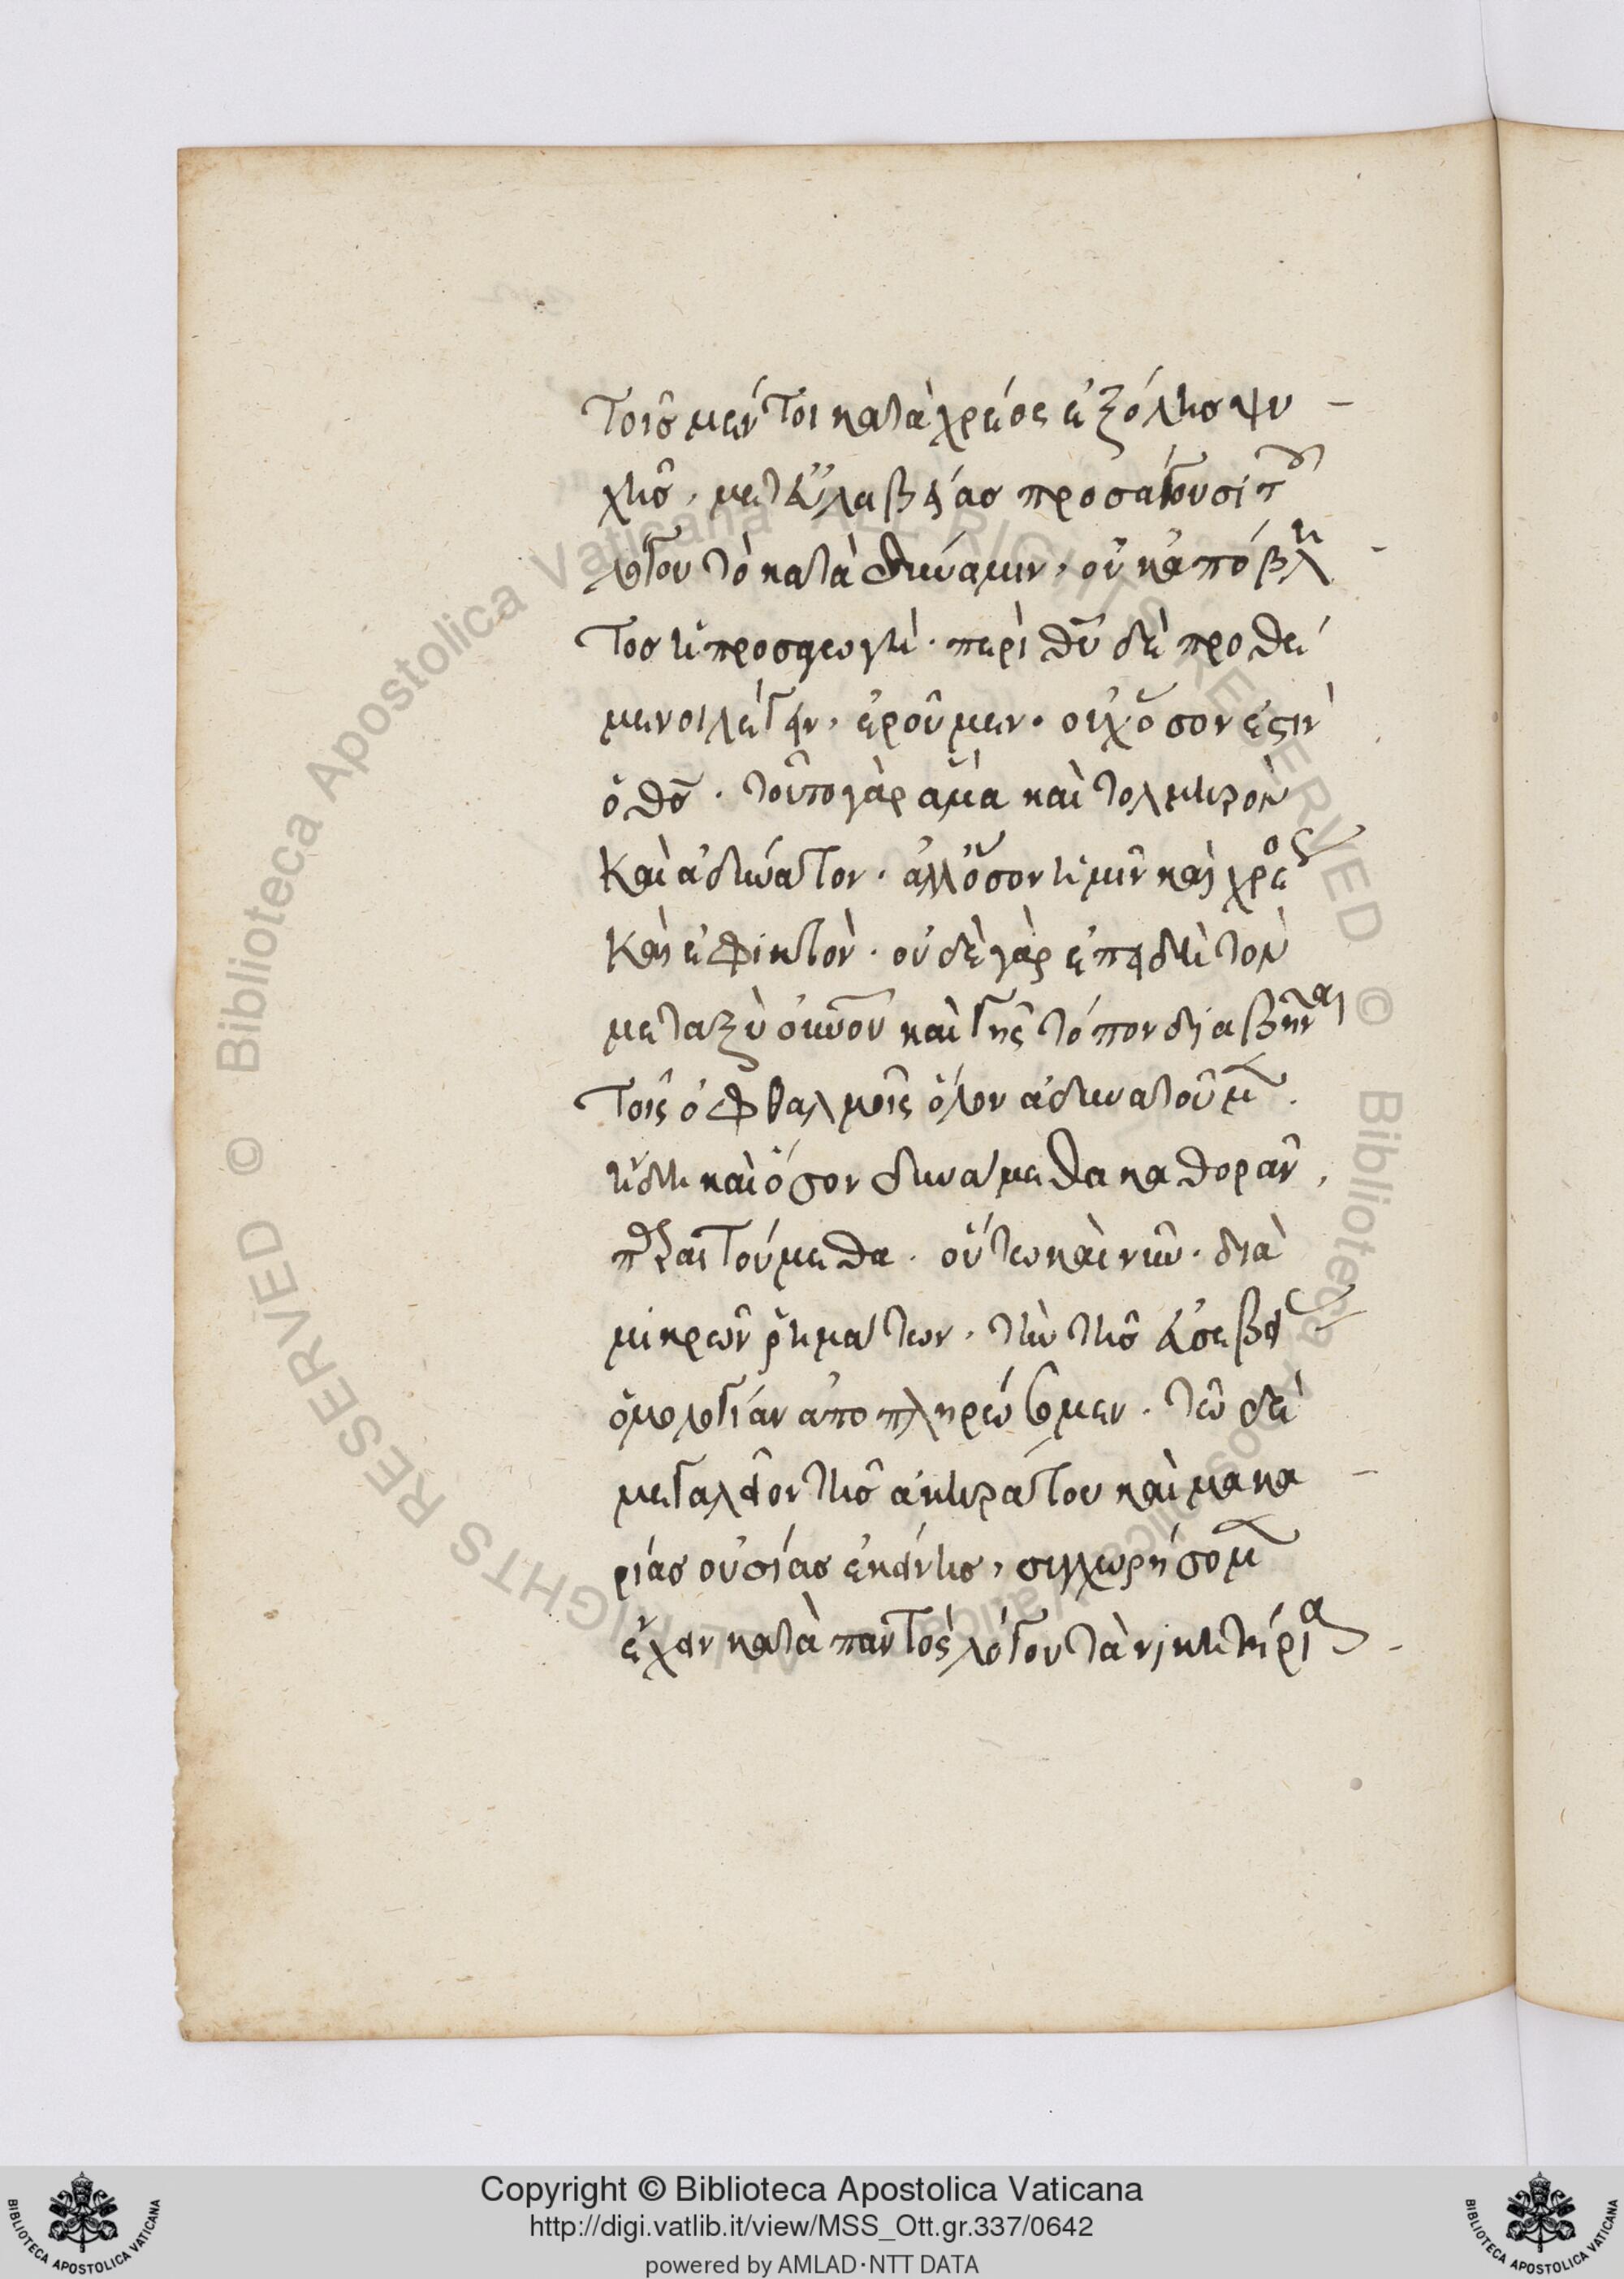 τοῖς μέν τοι κατὰ χρέος ἐξ ὅλης ψυ-
χῆς, μετ' εὐλαβείας προσάγουσι τ(ὸν)
λόγου τὸ κατὰ δύναμιν, οὐκ ἀπόβλη-
τος ἡ προσαγωγή. περὶ θυ δὲ προθέ
μενοι λέγειν, ἐροῦμεν. οὐχ ὅσον ἐστὶν
ὁ θς. τοῦτο γὰρ ἅμα καὶ τολμηρὸν
καὶ ἀδύνατον. ἀλλ' ὅσον ἡμῖν καὶ χρέος
καὶ ἐφικτόν. οὐδὲ γὰρ ἐπειδὴ τὸν
μεταξὺ οὐνου καὶ γῆς τόπον διαβῆναι
τοῖς ὀφθαλμοῖς ὅλον ἀδυνατοῦμ(εν).
ἤδη καὶ ὅσον δυνάμεθα καθορᾶν,
π(αρ)αιτούμεθα. οὕτω καὶ νῦν. διὰ
μικρῶν ῥημάτων, τὴν τῆς εὐσεβεί(ας)
ὁμολογίαν ἀποπληρώσομεν. τῶ δὲ
μεγαλείον τῆς ἀκηράτου καὶ μακα-
ρίας οὐσίας ἐκείνης, συγχωρήσομ(εν)
ἔχειν κατὰ παντὸς λόγου τὰ νικητήρια-
Copyright © Biblioteca Apostolica Vaticana
http://digi.vatlib.it/view/MSS_Ott.gr.337/0642
powered by AMLAD·NTT DATA